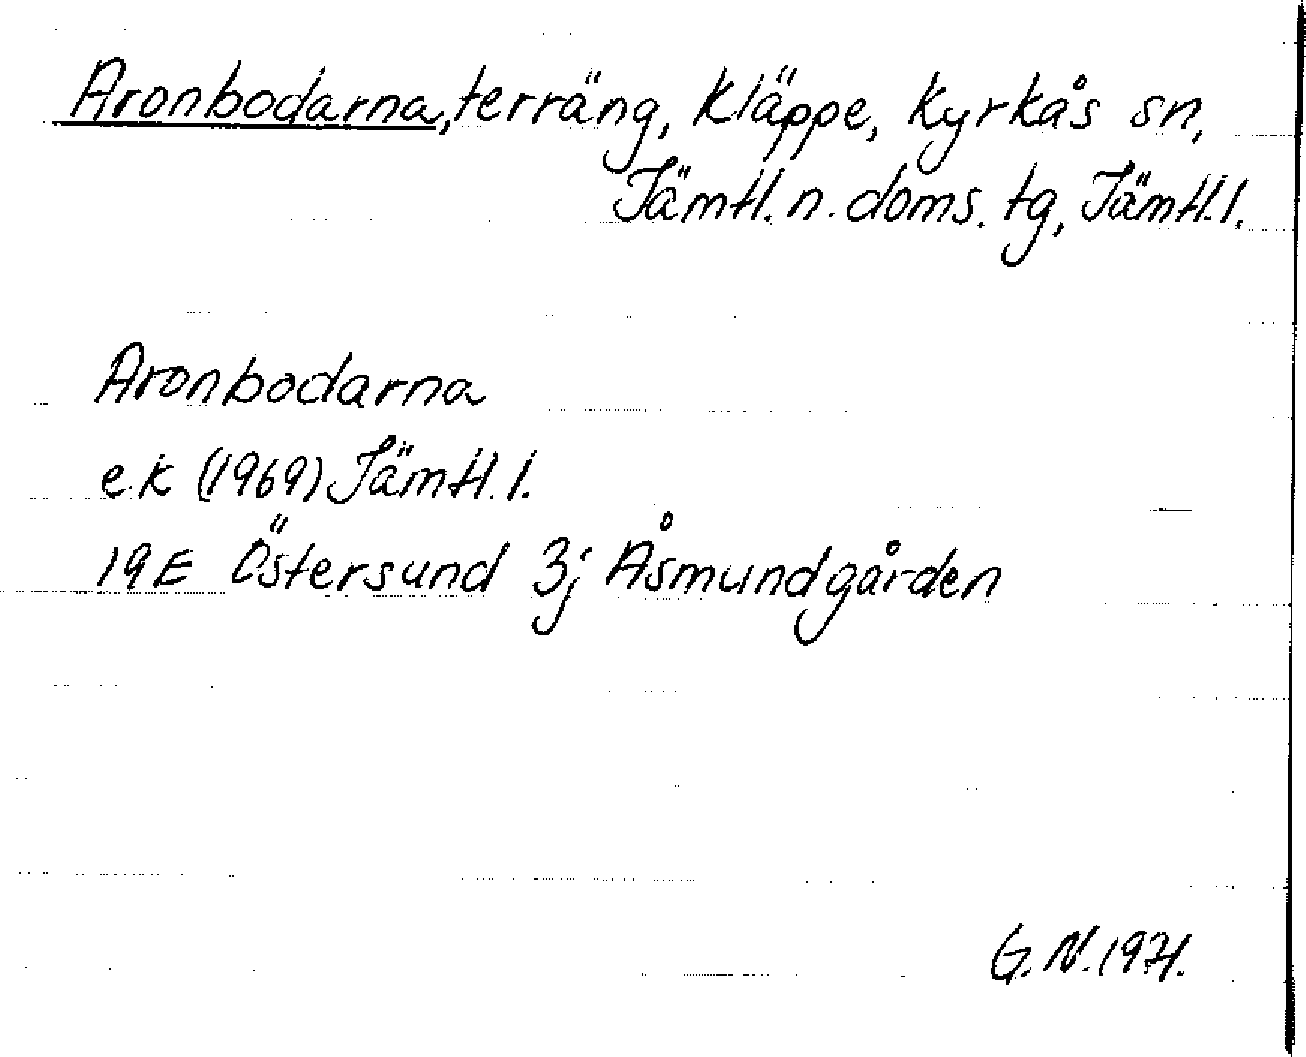 Aronbodarna, terräng, Kläppe, Kyrkås sn,
Jämtl. n. doms. tg, Jämtl. l.
Aronbodarna
e.k (1969) Jämtl. l.
19E Östersund 3j Åsmundgården
G. N. 1971.